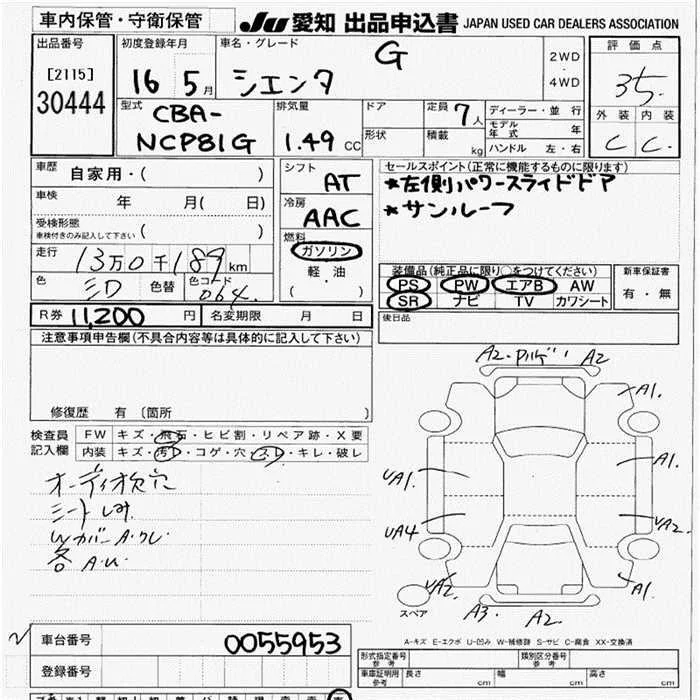 車内保管・守衛保管
JU 愛知 出品申込書 JAPAN USED CAR DEALERS ASSOCIATION
出品番号
[2115]
30444
初度登録年月
16年5月
車名・グレード
シエンタ G
2WD
・
4WD
評価点
35.
外装 内装
C C.
型式
CBA-
NCP81G
排気量
1.49 CC
ドア
形状
定員 7人
積載 kg
ディーラー・並行
モデル年式 年
ハンドル 左・右
車歴 自家用・( )
車検 年 月( 日)
受検形態
車検付きのみ記入して下さい ( )
走行 13万0千189 km
色 色替 色コード
064
シフト
AT
冷房
AAC
燃料
ガソリン
軽・油
・( )
セールスポイント(正常に機能するものに限ります)
*左側パワースライドドア
*サンルーフ
装備品(純正品に限り○をつけてください)
PS PW エアB AW
SR ナビ TV カワシート
新車保証書
有・無
R券 11,200 円 名変期限 月 日
後日品
注意事項申告欄(不具合内容等は具体的に記入して下さい)
修復歴 有 〔箇所 〕
検査員
記入欄
FW キズ・飛石・ヒビ割・リペア跡・X要
内装 キズ・汚れ・コゲ・穴・スレ・キレ・破レ
オーディオ欠穴
シートしみ
各A.U.
A2 A2
A1.
UA1. A1.
UA4 UA2.
UA2. A1.
A3. A2.
スペア
A-キズ E-エクボ U-凹み W-補修跡 S-サビ C-腐食 XX-交換済
車台番号 0055953
登録番号
形式指定番号
参考
類別区分番号
参考
車庫証明用
参考
長さ cm 幅 cm 高さ cm